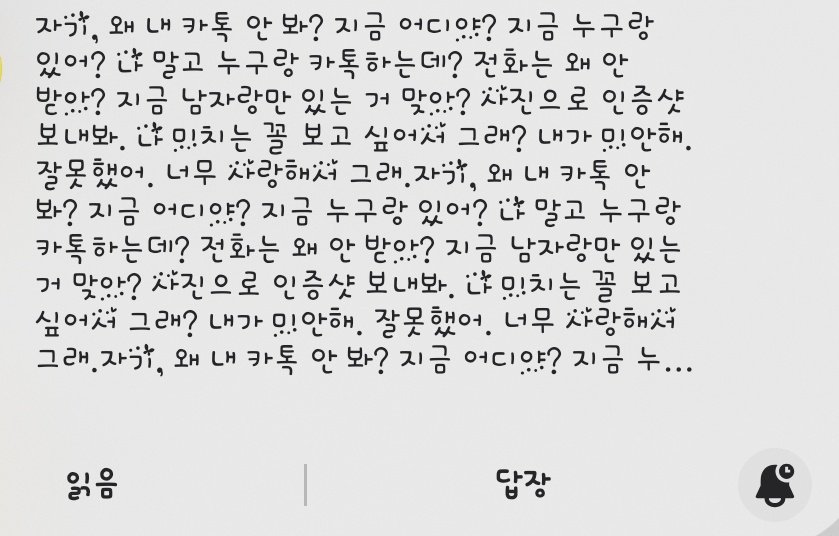 자기, 왜 내 카톡 안 봐? 지금 어디야? 지금 누구랑
있어? 나 말고 누구랑 카톡하는데? 전화는 왜 안
받아? 지금 남자랑만 있는 거 맞아? 사진으로 인증샷
보내봐. 나 미치는 꼴 보고 싶어서 그래? 내가 미안해.
잘못했어. 너무 사랑해서 그래.자기, 왜 내 카톡 안
봐? 지금 어디야? 지금 누구랑 있어? 나 말고 누구랑
카톡하는데? 전화는 왜 안 받아? 지금 남자랑만 있는
거 맞아? 사진으로 인증샷 보내봐. 나 미치는 꼴 보고
싶어서 그래? 내가 미안해. 잘못했어. 너무 사랑해서
그래.자기, 왜 내 카톡 안 봐? 지금 어디야? 지금 누...
읽음
답장